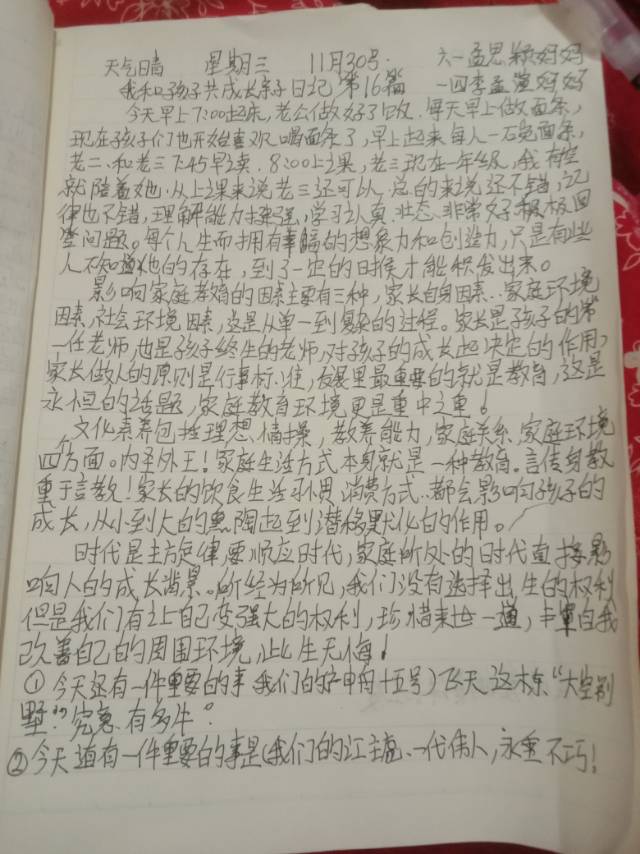 天气晴 星期三 11月30号. 六一孟思颖妈妈
我和孩子共成长亲子日记 第16篇 一四李孟滢妈妈
今天早上7:00起床,老公做好了饭.每天早上做面条,
现在孩子们也开始喜欢喝面条了,早上起来每人一碗面条,
老二和老三7:45早读.8:00上课,老三现在一年级,我有空
就陪着她.从上课来说老三还可以.总的来说还不错,记
律也不错,理解能力超强,学习认真.状态.非常好积极回
答问题。每个人生而拥有幸福的想象力和创造力,只是有些
人不知道他的存在,到了一定的时候才能积发出来。
影响家庭教育的因素主要有三种,家长自身因素..家庭环境
因素,社会环境因素,这是从单一到复杂的过程。家长是孩子的第
一任老师,也是孩子终生的老师,对孩子的成长起决定的作用,
家长做人的原则是行事标准,发展里最重要的就是教育,这是
永恒的话题,家庭教育环境更是重中之重!
文化素养包括理想.情操,教养能力,家庭关系.家庭环境
四个方面。内圣外王!家庭生活方式本身就是一种教育.言传身教
重于言教!家长的饮食生活习惯.消费方式..都会影响孩子的
成长,从小到大的熏陶起到潜移默化的作用。
时代是主旋律要顺应时代,家庭所处的时代直接影
响人的成长背景.所经为所见,我们没有选择出生的权利
但是我们有让自己变强大的权利,珍惜来世一遭,丰富自我
改善自己的周围环境,此生无悔!
①今天还有一件重要的事.我们的(神舟十五号)飞天 这栋“太空别
墅”究竟有多牛。
②今天还有一件重要的事是(我们的江主席.一代伟人,永垂不巧!